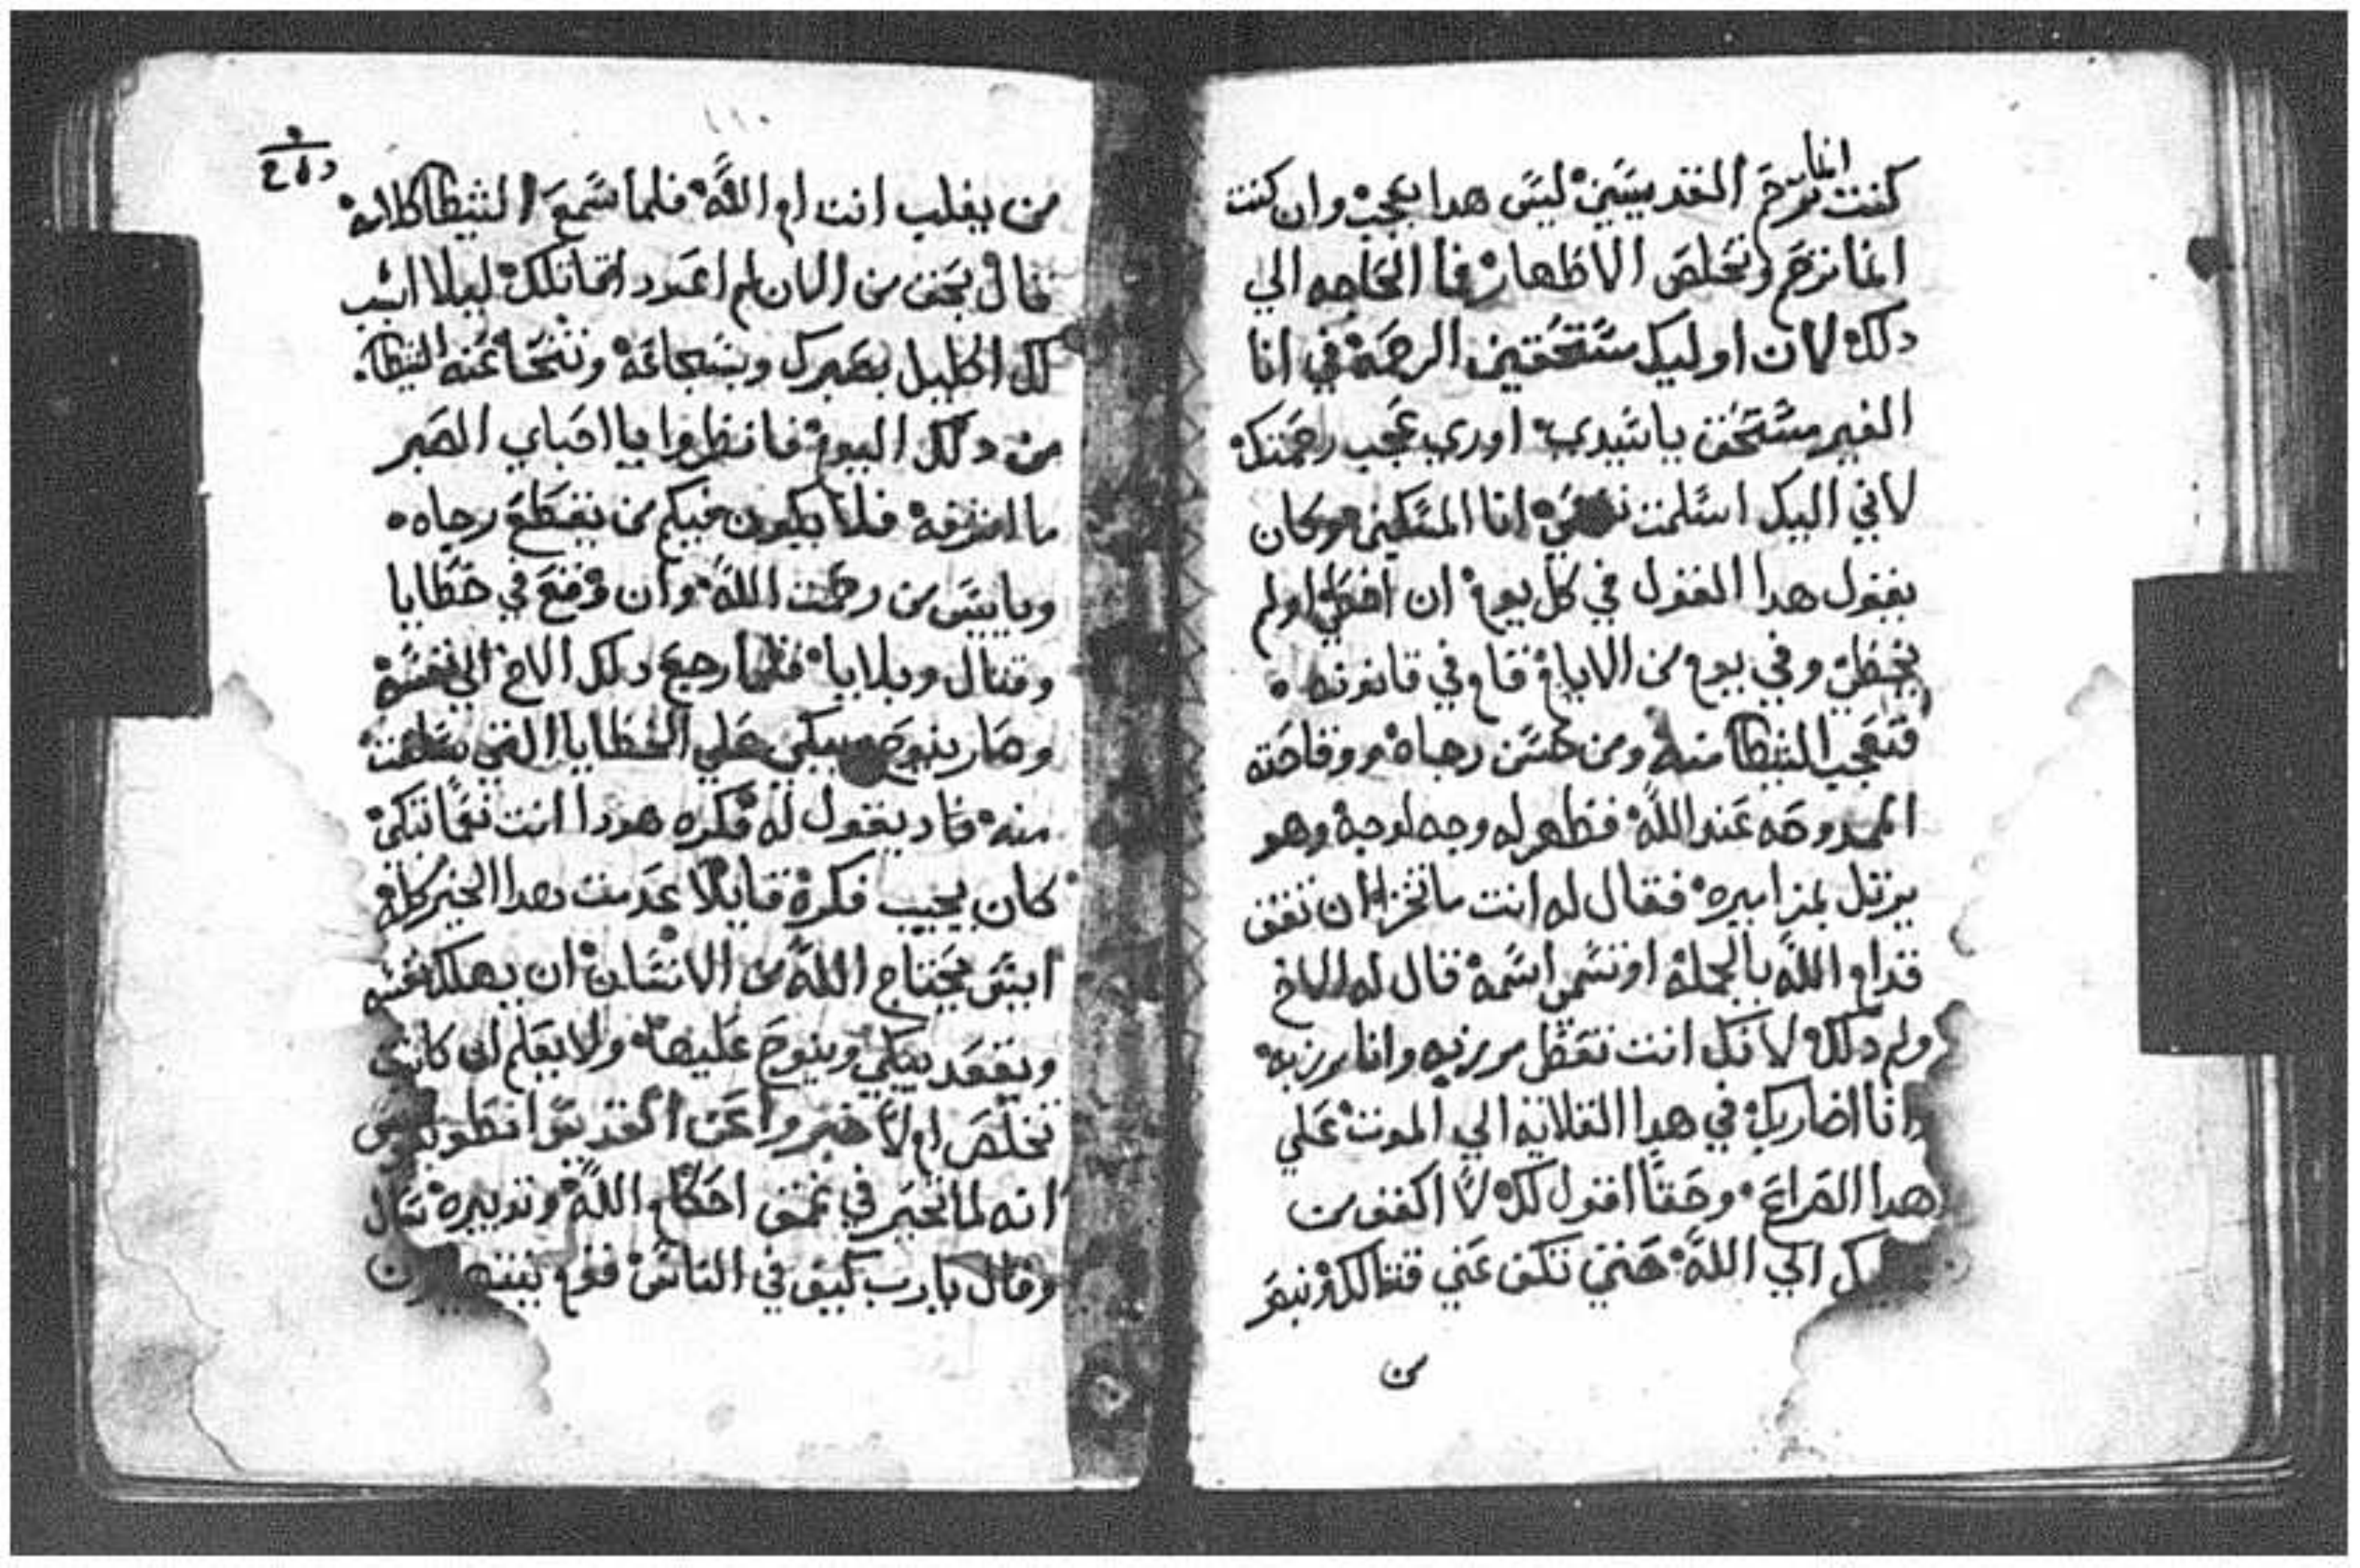 انما
كنت ترحم القديسين ليس هدا بعجب وان كنت
انما ترحم وتخلص الاطهار فما الحاجه الي
دلك لان اوليك مستحقين الرحمة في انا
الغير مستحق ياسيدي اوري عجب رحمتك
لاني اليك اسلمت نفسي انا المسكين وكان
يقول هدا القول في كل يوم ان اخطي اولم
يخطي وفي يوم من الايام قام في قانونه
فتعجب الشيطان منه ومن حسن رجاه ووقاحته
الممدوحه عند الله فظهر له وجه لوجه وهو
يرتل بمزاميره فقال له انت ما تخزا ان تقف
قدام الله بالجملة اوتسمي اسمه قال له الاخ
ولم دلك لانك انت تعطل مرزبه وانا مرزبه
وانا اضاربك في هدا القلايه الي الموت علي
هدا الصراع وحقا اقول لك لا اكفف من
الي الله حتي تكف عني قتالك ونبصر
من
من يغلب انت ام الله فلما سمع الشيطان كلامه
قال بحق من الان لم اعود اقاتلك ليلا اسبب
لك اكليل بصبرك وبشجاعة وتنحا عنه الشيطان
من دلك اليوم فانظروا يا احباي الصبر
ما اشرفه فلا يكون فيكم من يقطع رجاه
وياييس من رحمت الله وان وقع في خطايا
وقتال وبلايا فلما رجع دلك الاخ الي نفسه
وصار ينوح ويبكي علي الخطايا التي سلفت
منه فاد يقول له فكره هودا انت نعما تبكي
كان يجيب فكرة قايلا عدمت هدا الخير كله
ايش يحتاج الله من الانسان ان يهلك نفسه
ويقعد يبكي وينوح عليها ولا يعلم ان كانت
تخلص ام لا خبروا عن القديس انطونيوس
انه لما تحير في عمق احكام الله وتدبيره سال
وقال يا رب كيف في الناس قوم